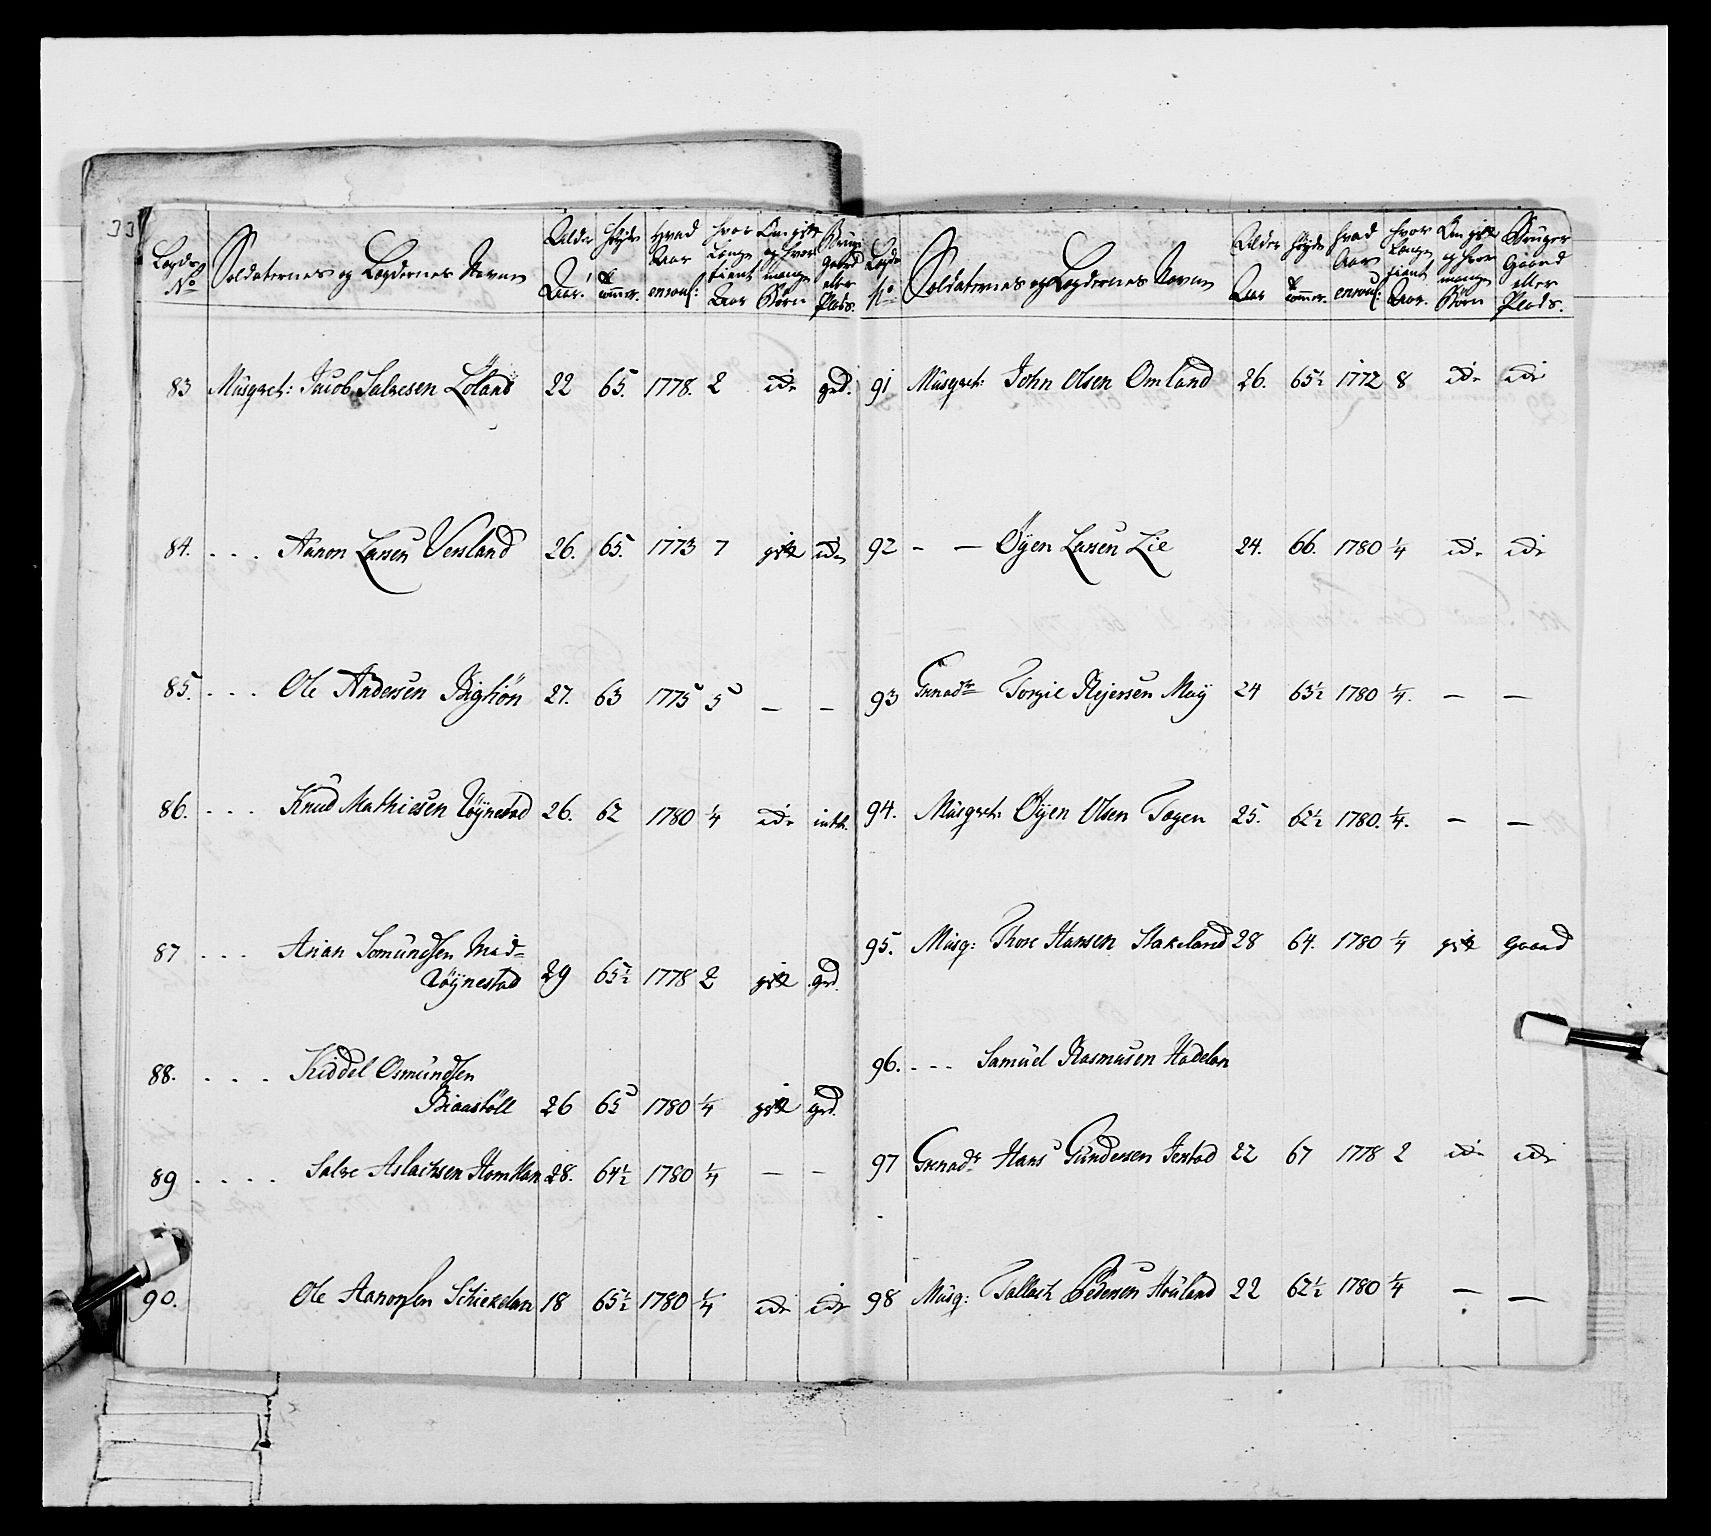 33
Lægds No | Soldaternes og Lægdernes Navne | Alder Aar. | Høyde Tommer. | Hvad Aar enroul: | hvor Længe tient Aar | Om gift og hvor mange Børn | Bruger Gaard eller Plads.
83 Müsqvet: Jacob Salvesen Löland 22 65. 1778. 2 idr grd.
84. - - - Aanon Larsen Versland 26. 65. 1773 7 gift idr
85. - - - Ole Andersen 27. 63 1775 5 — —
86. - - - Knud Mathiesen Röynestad 26. 62 1780 1/4 idr intet.
87 - - - Arian Somundsen Mad=
Röynestad 29 65½ 1778 2 gift grd.
88. - - - Kiddel Osmundsen
Biaastöll 26 65 1780 1/4 gift grd.
89 - - - - Salve Aslachsen Homstan 28. 64½ 1780 1/4 — —
90. Ole Aanonsen Schiekelan 18 65½ 1780 1/4 idr idr
Lægds No | Soldaternes og Lægdernes Navne | Alder Aar | høyde Tommer. | hvad Aar enroul: | hvor Længe tient Aar. | Om gift og hvor mange Börn | Bruger Gaard eller Plads.
91 Müsqvet: John Olsen Omland 26. 65½ 1772 8 idr idr
92 - — Öÿen Larsen Lie 24. 66. 1780 1/4 idr idr
93 Grenadr Torgie Rejersen Moÿ 24 63½ 1780 1/4. — —
94. Müsqvet: Öÿen Olsen Tagen 25. 62½ 1780. 1/4. — —
95. Müsq: Thore Hansen Stakeland 28 64. 1780 1/4 gift Gaard
96. - - - Samüel Rasmusen Hadelan
97 Grenadr Hans Gundersen Jerstad 22 67 1778 2 idr idr
98 Müsq: Tallach Pedersen Houland 22 62½ 1780 1/4 — —